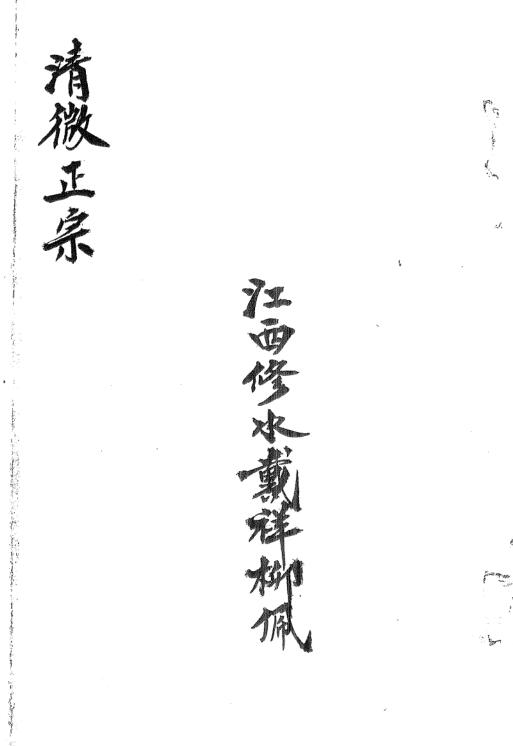 清微正宗
江西修水戴祥柳佩